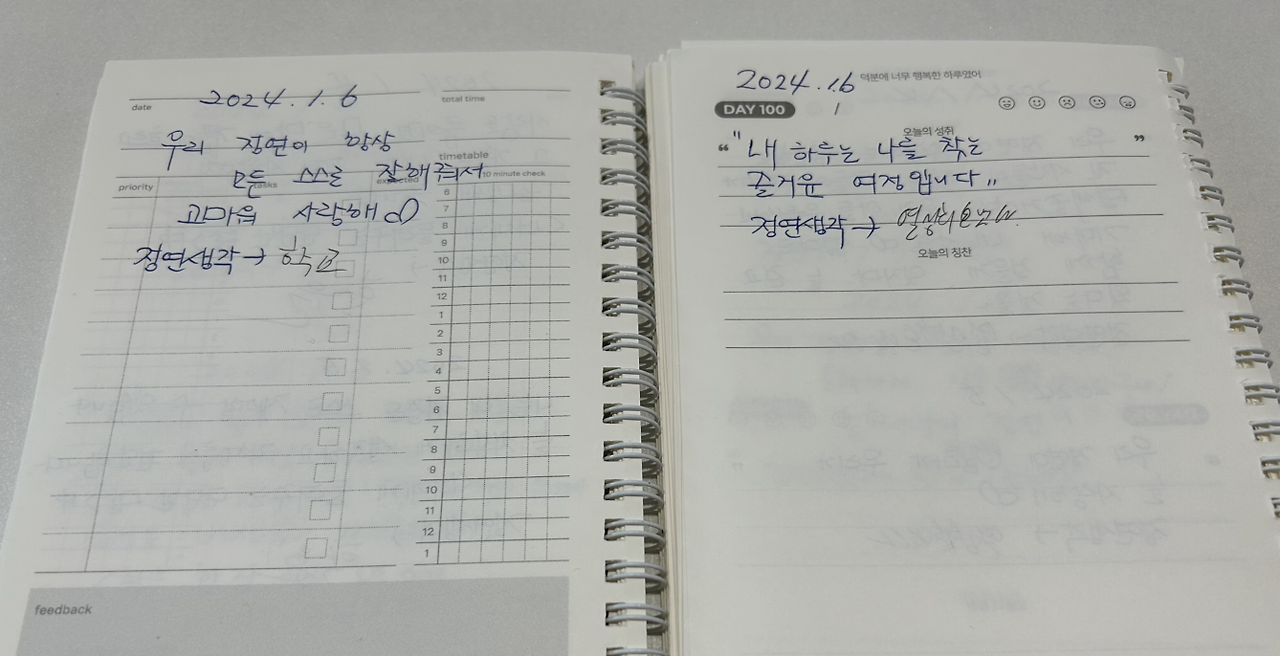 date 2024.1.6
total time
우리 정연이 항상
모든 스스로 잘해줘서
고마워 사랑해
정연생각→ 학교
timetable
priority tasks 10 minute check
6
7
8
9
10
11
12
1
2
3
4
5
6
7
8
9
10
11
12
1
feedback
2024.1.6 덕분에 너무 행복한 하루였어
DAY 100
오늘의 성취
“ "내 하루는 나를 찾는 ”
즐거운 여정입니다"
정연생각→
오늘의 칭찬